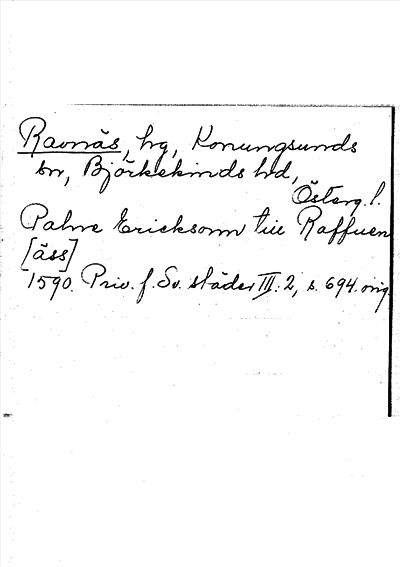 Ravnäs, hg, Konungsunds
sn, Björkekinds hd,
Österg. l.
Palne Ericksonn till Raffuen
[äss]
1590. Priv. f. Sv. städer III: 2, s. 694. orig.